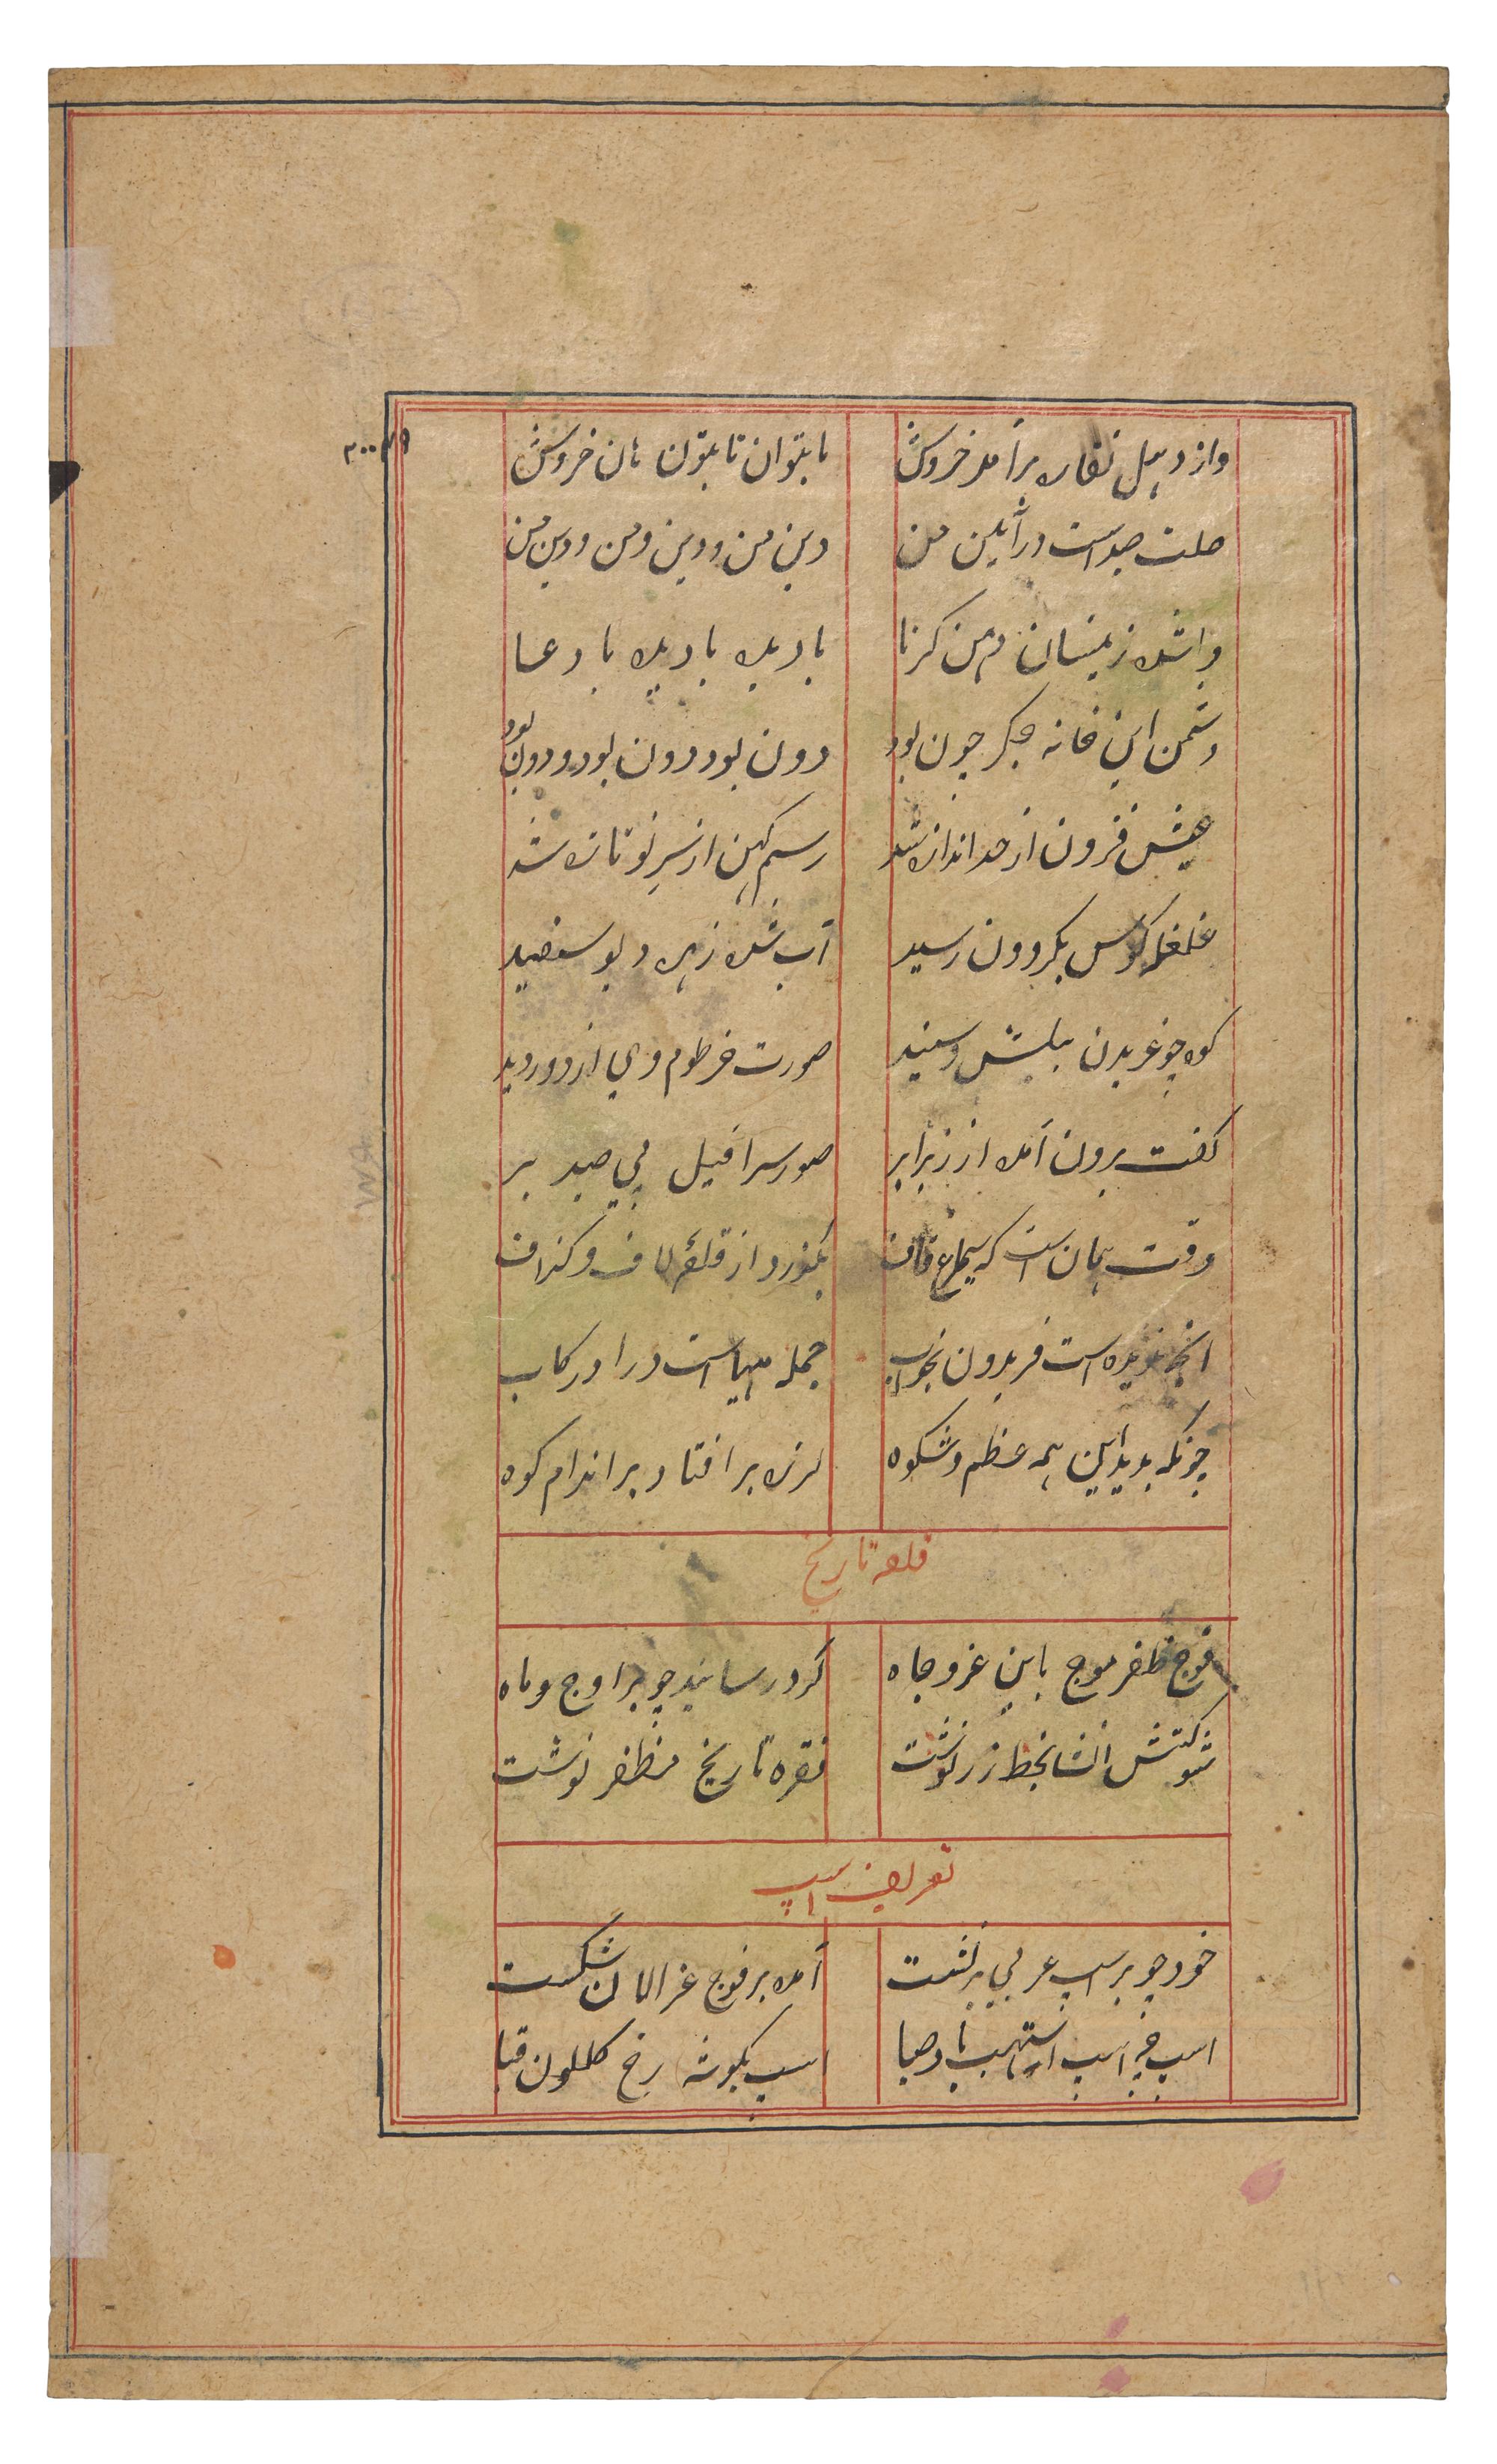 واز دہل نقاره برآمد خروش
تا بتوان تا بتوان هان خروش
دین من و دین من و دین من
باد بده باد بده باد عا
دشمن این خانه جگر چون بود
دون بود دون بود و دون بود
عیش فزون از حد اندازه شد
رسم کهن از سر نو تازه شد
غلغل کوس بگردون رسید
آب شده زهره دیو سفید
صورت خرطوم وی از دور دید
گفت برون آمده از زیر ابر
صور سرافیل پی صید ببر
وقت همان است که سیمرغ قاف
بگذرد از قلهٔ لاف و گزاف
است فریدون بخواب
جمله مهیاست ورا در رکاب
چونکه بدید این همه عظم و شکوه
لرزه بر افتاد بر اندام کوه
تاریخ
فوج ظفر موج باین عز و جاه
گرد رسانید چو بر اوج ماه
انشا بخط زر نوشت
فقره تاریخ مظفر نوشت
تعریف اسپ
خود چو بر اسپ عربی برنشست
آمده بر فوج غزالان شکست
اسپ باد صبا
اسپ نگو شه رخ گلگون قبا